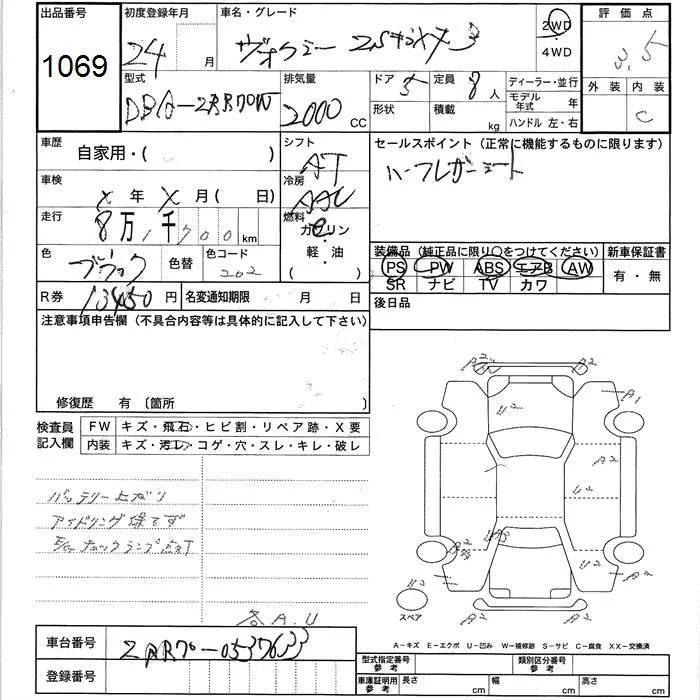 出品番号
1069
初度登録年月
24 月
車名・グレード
ヴォクシー ZS
2WD
4WD
評価点
3.5
外装 内装
C
型式
DBA-ZRR70W
排気量
2000 CC
ドア 5
定員 8 人
形状
積載 kg
ディーラー・並行
モデル年式 年
ハンドル 左・右
車歴
自家用・( )
シフト
AT
冷房
AAC
燃料
ガソリン・軽・油
( )
セールスポイント(正常に機能するものに限ります)
ハーフレザーシート
車検
X 年 X 月( 日)
走行
8万1千700km
色
ブラック
色替
色コード
202
装備品(純正品に限り○をつけてください)
PS PW ABS エアB AW
SR ナビ TV カワ
新車保証書
有・無
R券 13450円
名変通知期限 月 日
後日品
注意事項申告欄(不具合内容等は具体的に記入して下さい)
修復歴 有〔箇所 〕
検査員記入欄
FW キズ・飛石・ヒビ割・リペア跡・X要
内装 キズ・汚レ・コゲ・穴・スレ・キレ・破レ
バッテリー上がり
アイドリング保てず
チェックランプ点灯
各A.U
A2
A2
A1
U2
A2
A2
U2
U2
U3
U2
スペア
A-キズ E-エクボ U-凹み W-補修跡 S-サビ C-腐食 XX-交換済
車台番号
ZRR70-0537633
登録番号
型式指定番号 参考
類別区分番号 参考
車庫証明用 参考
長さ cm
幅 cm
高さ cm